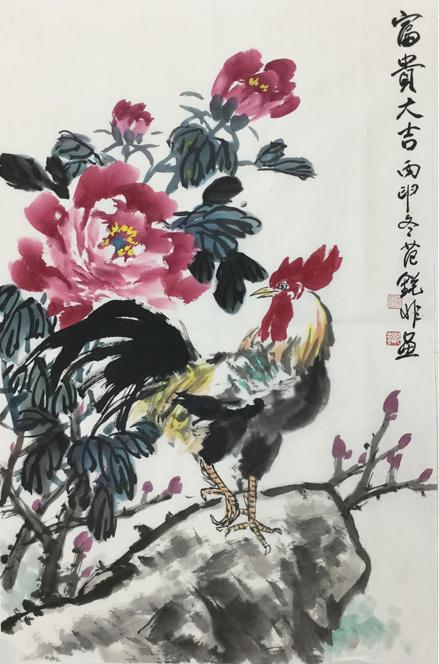 富貴大吉 丙申冬范銳非畫